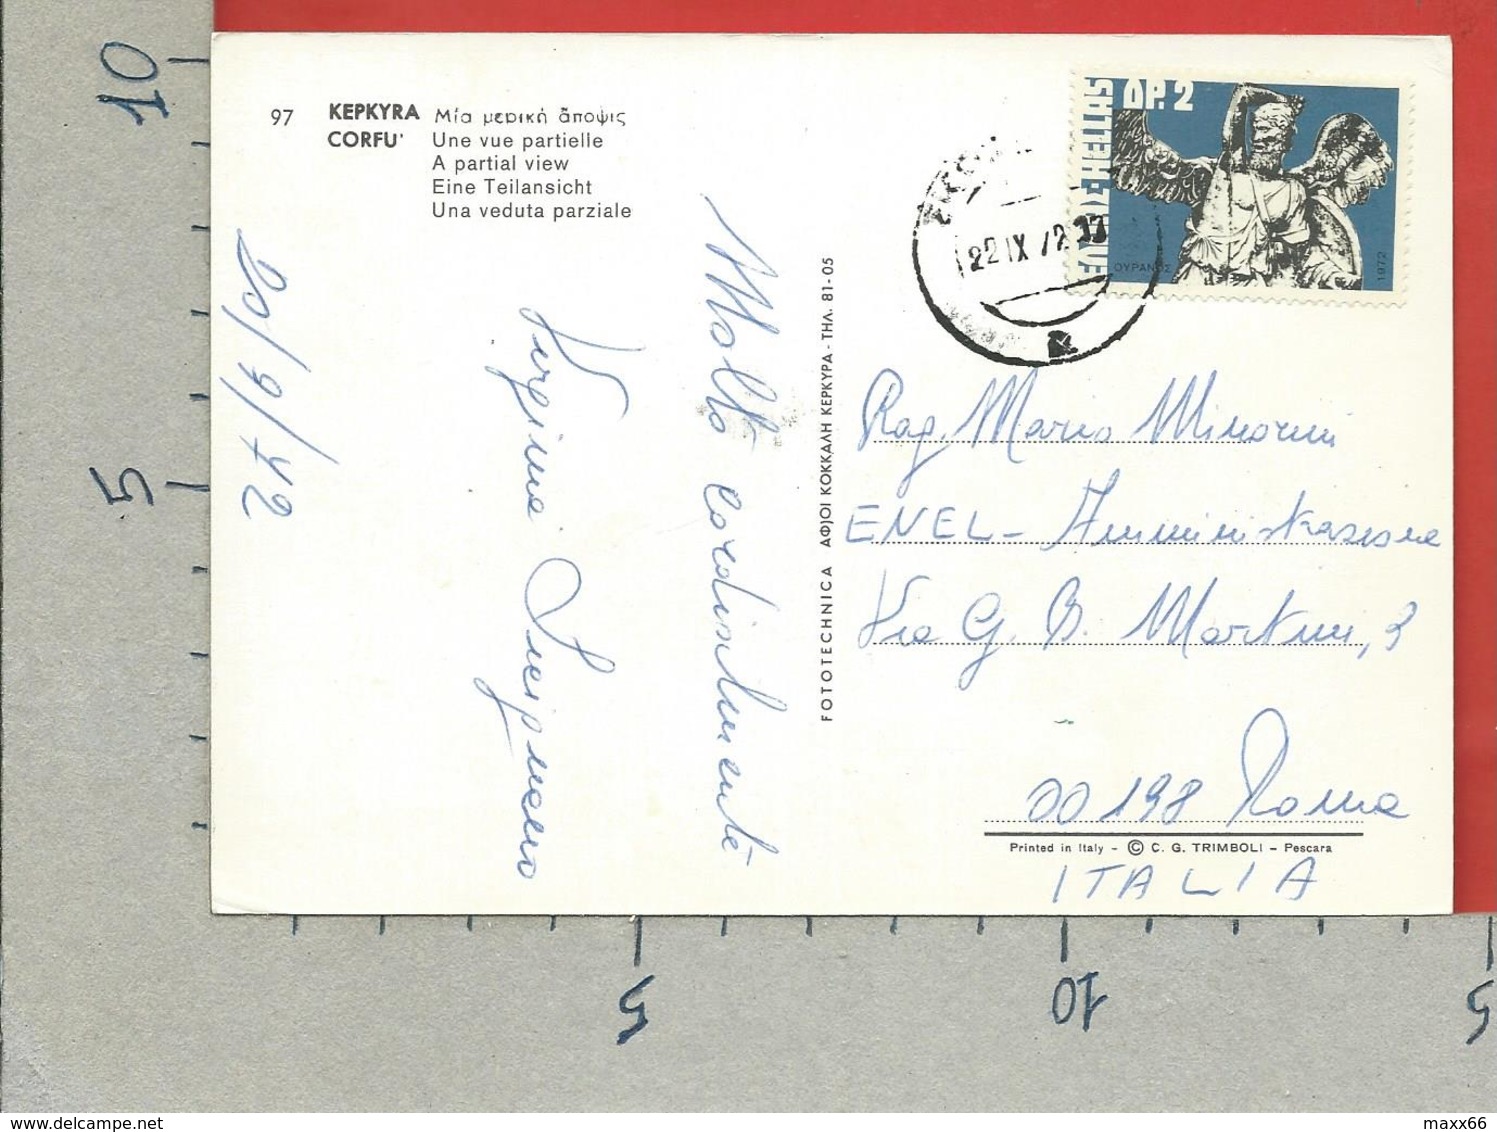 97 ΚΕΡΚΥRA Μία μερική ἄποψις
CORFU' Une vue partielle
A partial view
Eine Teilansicht
Una veduta parziale
20/9/72
Molto cordialmente
FOTOTECHNICA ΑΦ)ΟΙ ΚΟΚΚΑΛΗ ΚΕΡΚΥΡΑ - ΤΗΛ. 81-05
ΕΛΛΑΣ-HELLAS
ΔΡ. 2
ΟΥΡΑΝΟΣ
1972
22 IX 72
Rag. Mario
ENEL - Amministrazione
Via G. B. Martini, 3
00198 Roma
Printed in Italy - © C. G. TRIMBOLI - Pescara
ITALIA
10
5
5
10
5
delcampe.net
maxx66